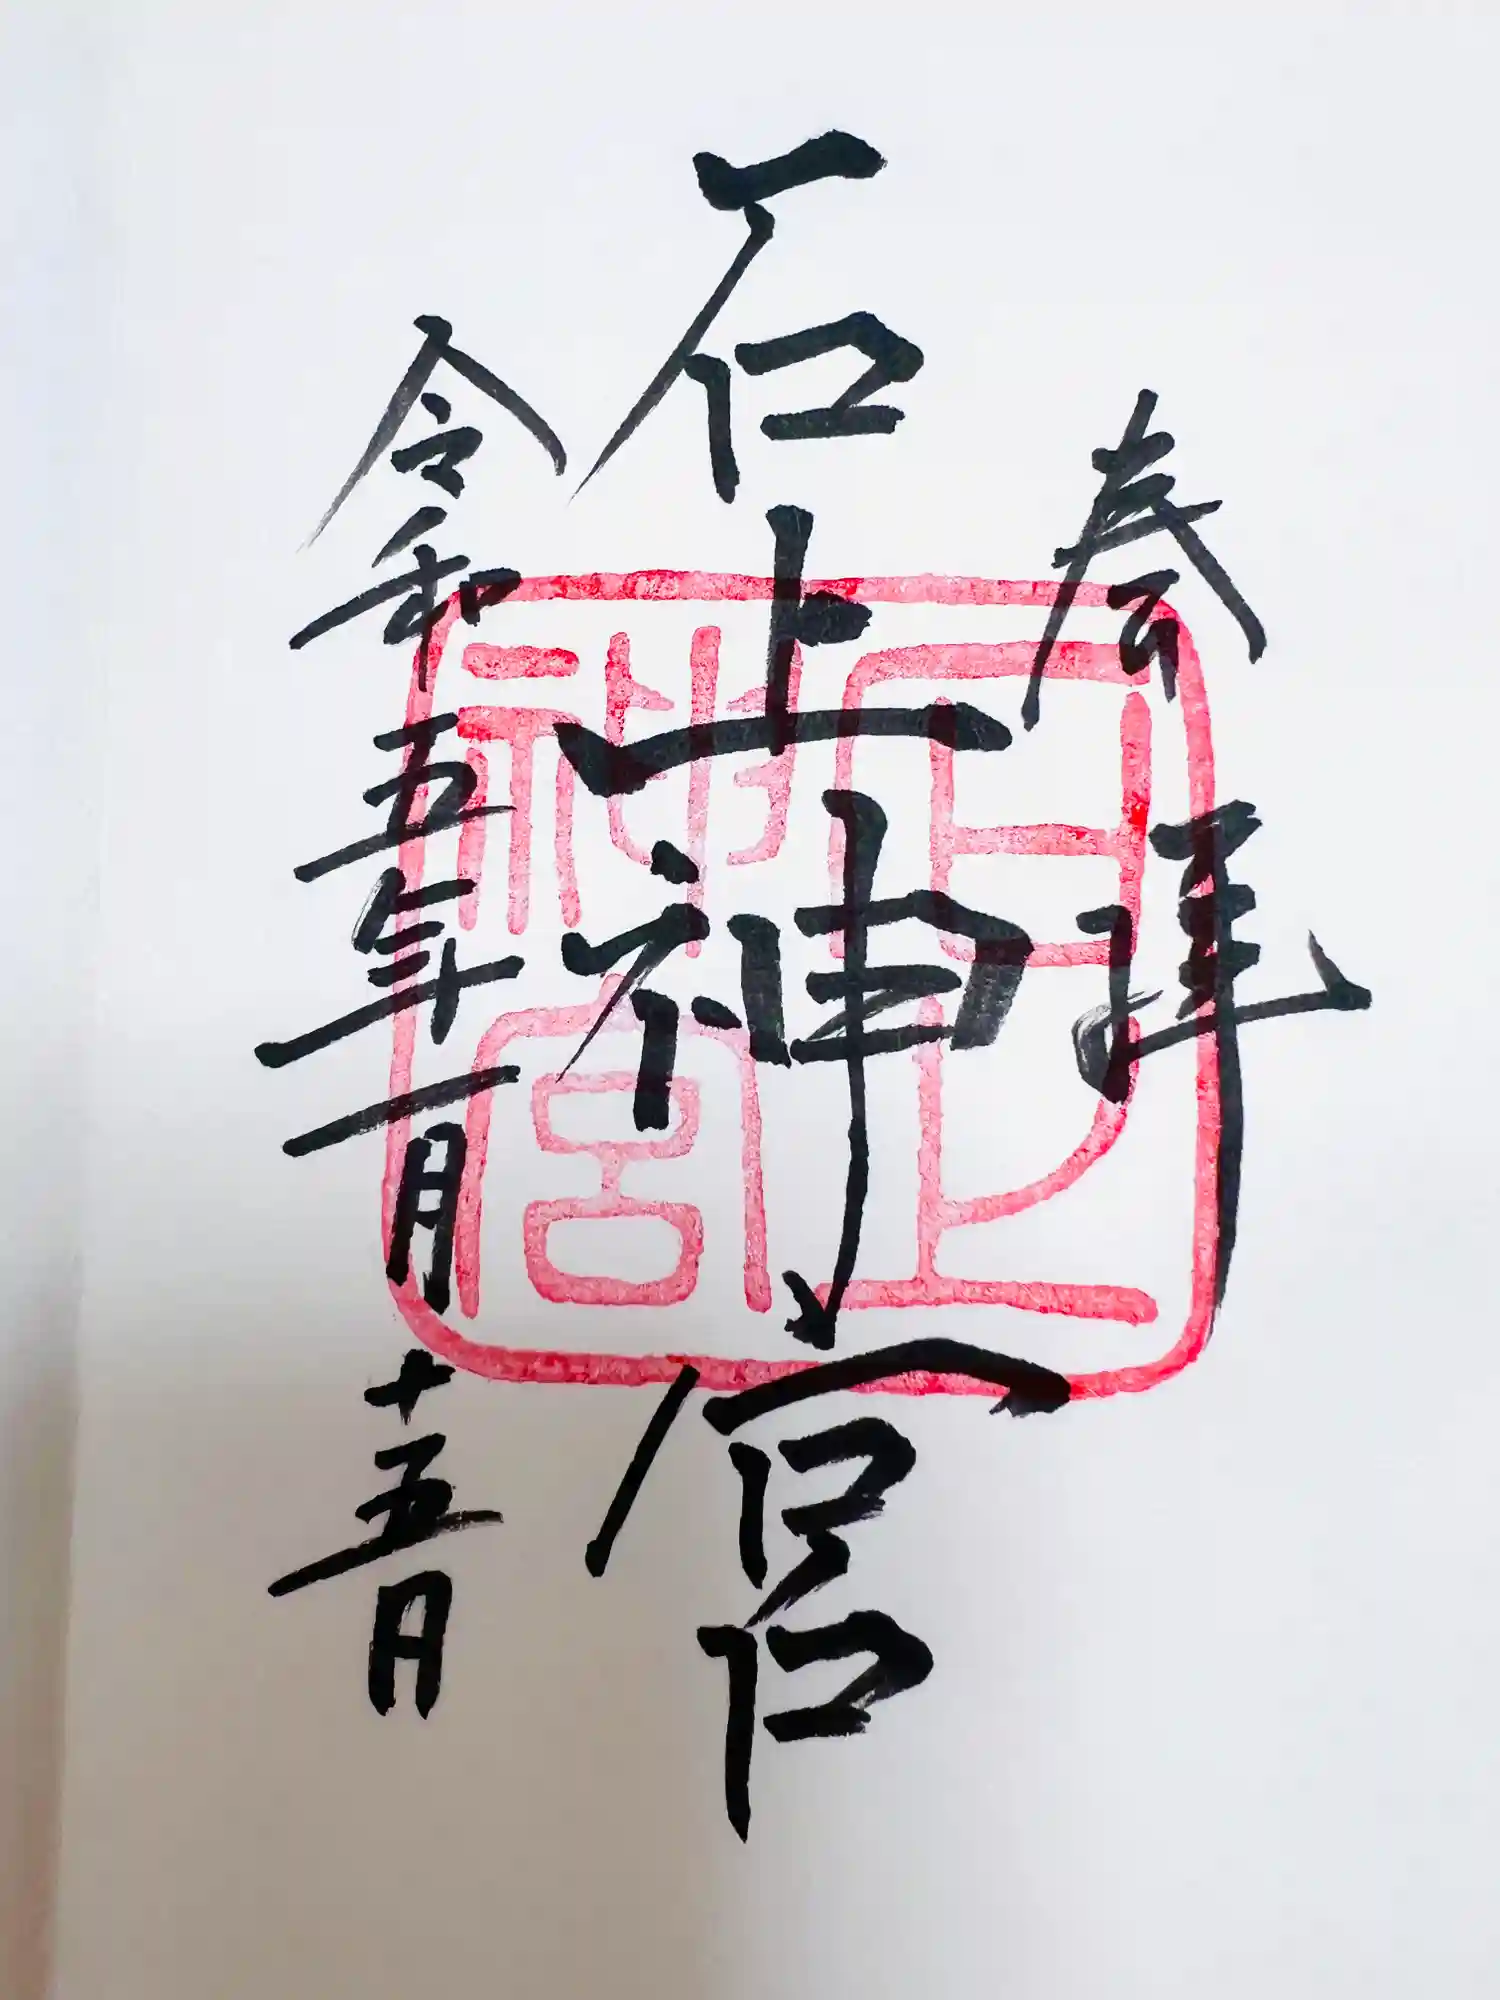 奉拝
石上神宮
令和五年一月十五日
石上
神宮